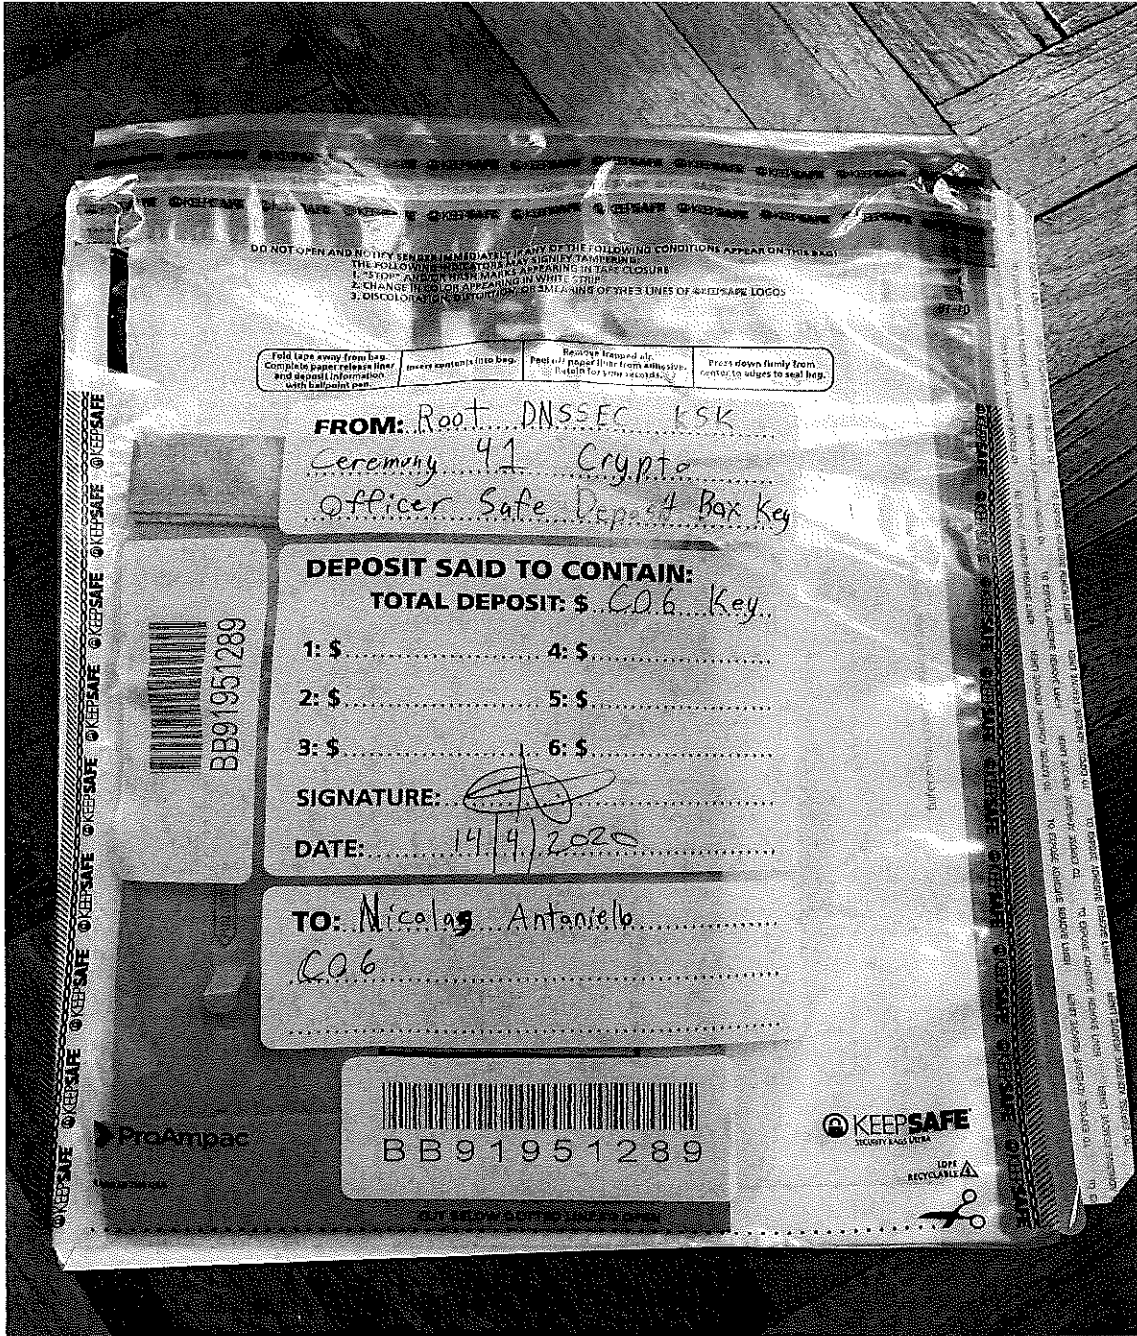 KEEPSAFE KEEPSAFE KEEPSAFE KEEPSAFE KEEPSAFE KEEPSAFE
DO NOT OPEN AND NOTIFY SENDER IMMEDIATELY IF ANY OF THE FOLLOWING CONDITIONS APPEAR ON THIS BAG:
THE FOLLOWING INDICATORS MAY SIGNIFY TAMPERING:
1. "STOP" AND/OR HASH MARKS APPEARING IN TAPE CLOSURE
2. CHANGE IN COLOR APPEARING IN WHITE STRIP
3. DISCOLORATION, DISTORTION, OR SMEARING OF THE 3 LINES OF KEEPSAFE LOGOS
Fold tape away from bag.
Complete paper release liner
and deposit information
with ballpoint pen.
Insert contents into bag.
Remove trapped air.
Peel off paper liner from adhesive.
Retain for your records.
Press down firmly from
center to edges to seal bag.
FROM: Root DNSSEC KSK
Ceremony 41 Crypto
Officer Safe Deposit Box Key
DEPOSIT SAID TO CONTAIN:
TOTAL DEPOSIT: $ CO6 Key
1: $ 4: $
2: $ 5: $
3: $ 6: $
SIGNATURE:
DATE: 14/4/2020
BB91951289
TO: Nicolas Antaniello
CO6
BB91951289
ProAmpac
KEEPSAFE
SECURITY BAGS ULTRA
LDPE
RECYCLABLE 4
CUT BELOW DOTTED LINE TO OPEN